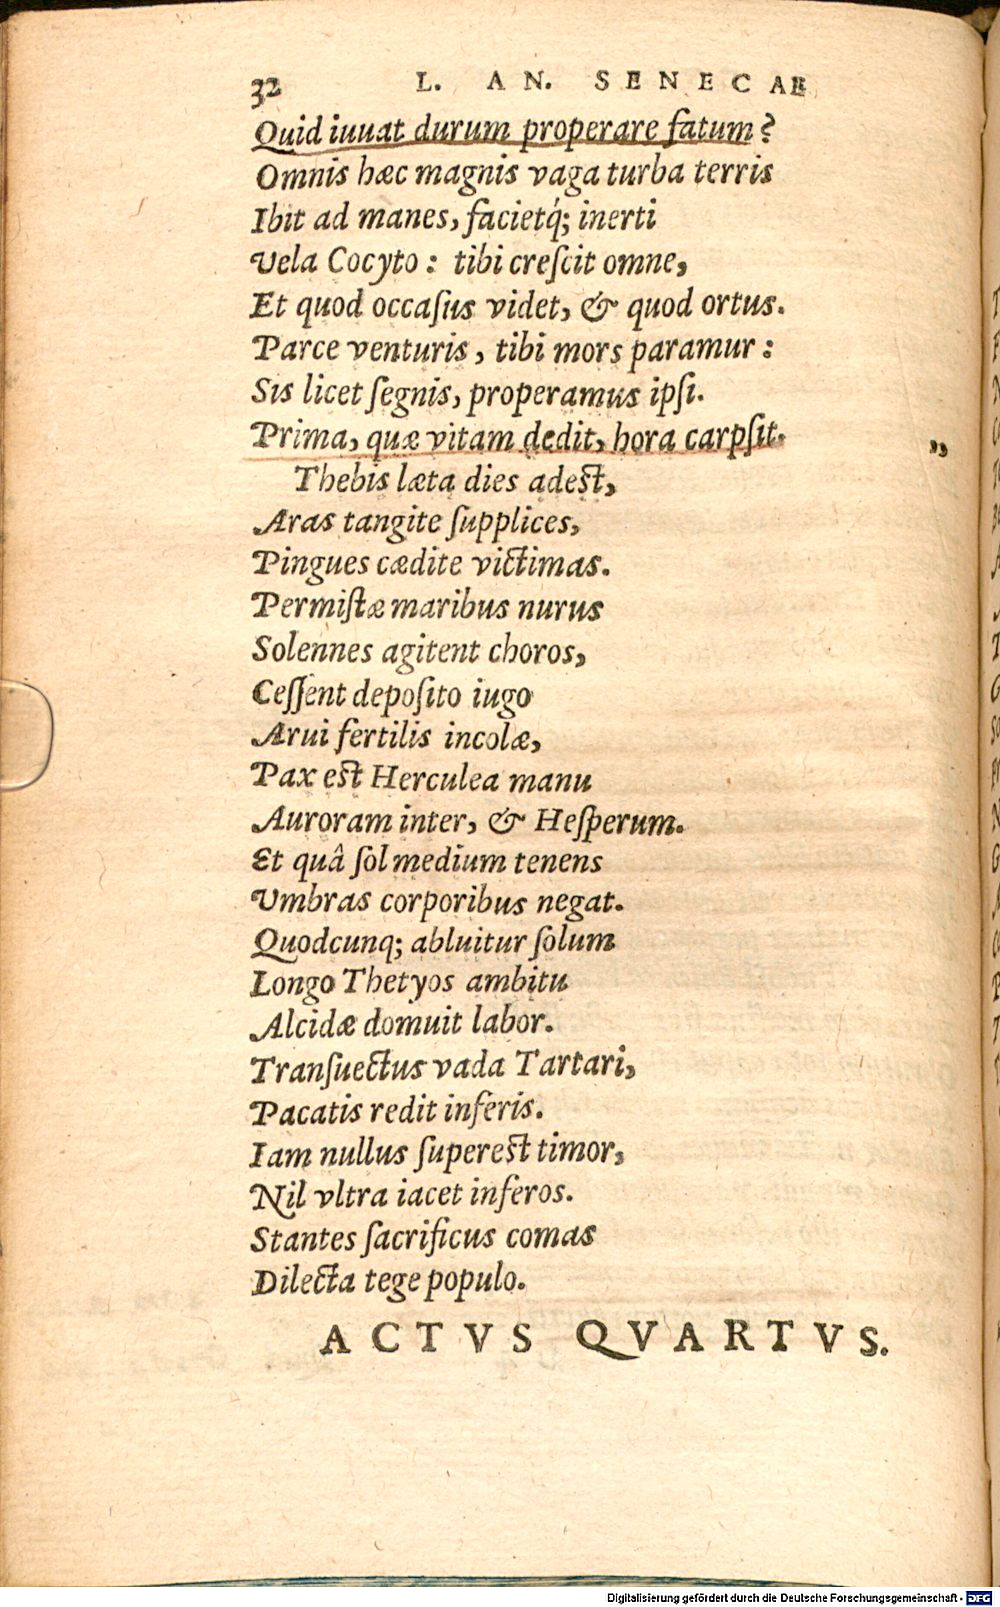 32 L. AN. SENECAE
Quid iuuat durum properare fatum?
Omnis hæc magnis vaga turba terris
Ibit ad manes, facietq́; inerti
Vela Cocyto: tibi creſcit omne,
Et quod occaſus videt, & quod ortus.
Parce venturis, tibi mors paramur:
Sis licet ſegnis, properamus ipſi.
Prima, quæ vitam dedit, hora carpſit. „
Thebis læta dies adest,
Aras tangite ſupplices,
Pingues cædite victimas.
Permiſtæ maribus nurus
Solennes agitent choros,
Ceſſent depoſito iugo
Arui fertilis incolæ,
Pax est Herculea manu
Auroram inter, & Heſperum.
Et quâ ſol medium tenens
Vmbras corporibus negat.
Quodcunq; abluitur ſolum
Longo Thetyos ambitu
Alcidæ domuit labor.
Tranſuectus vada Tartari,
Pacatis redit inferis.
Iam nullus ſuperest timor,
Nil vltra iacet inferos.
Stantes ſacrificus comas
Dilecta tege populo.
ACTVS QVARTVS.
Digitalisierung gefördert durch die Deutsche Forschungsgemeinschaft - DFG